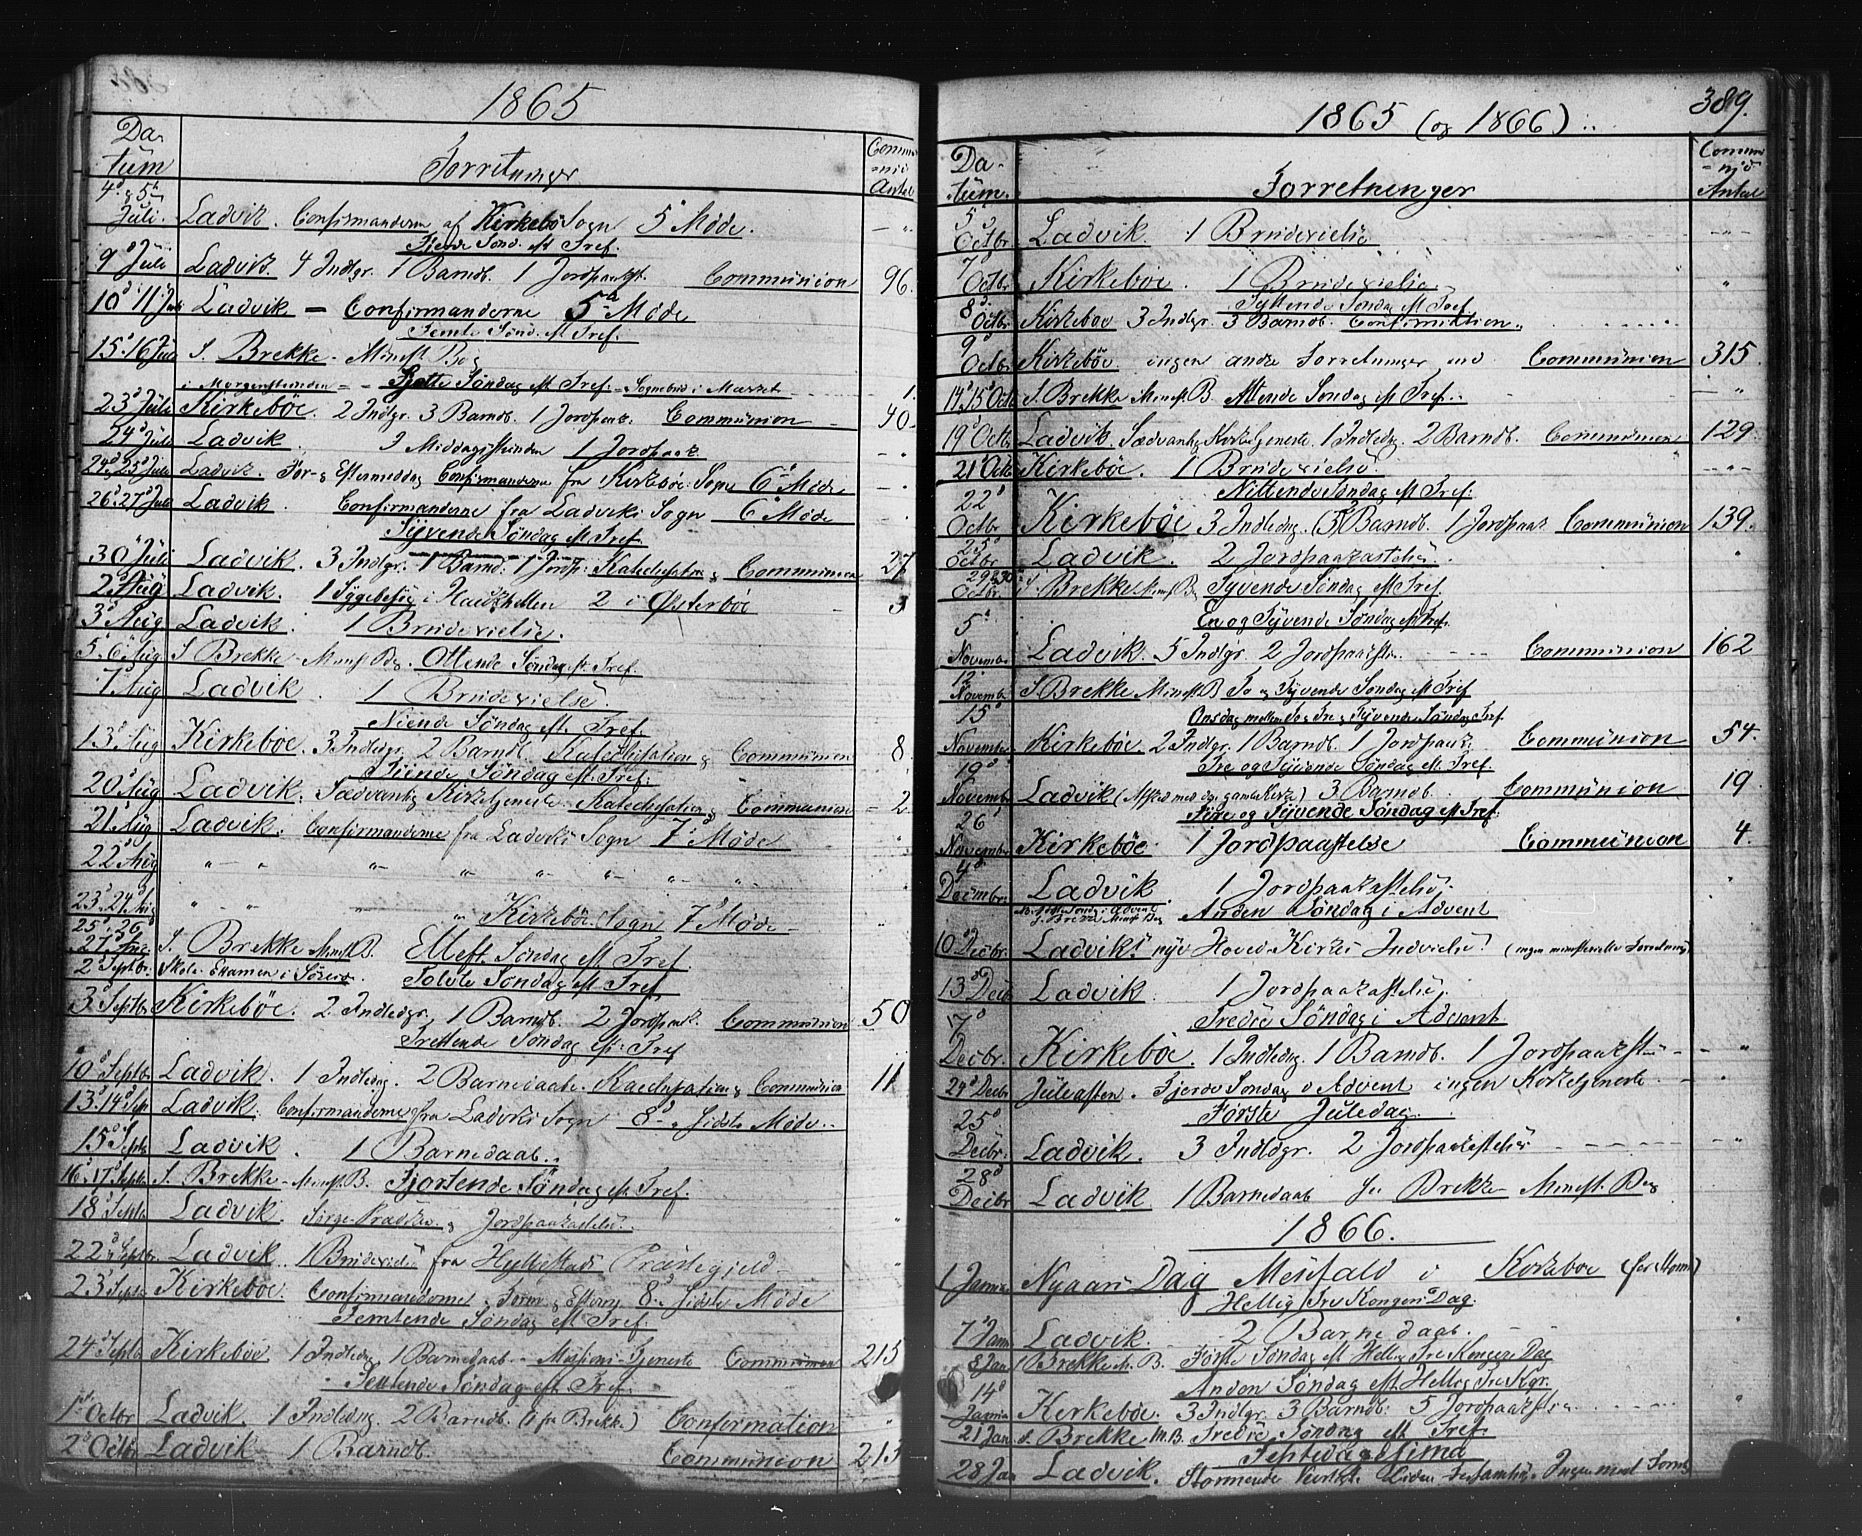 1865
Da-
tum
Forretninger
Commu
-nic
Antal
4d & 5te
Juli. Ladvik. Confirmanderne af Kirkebö Sogn 5te Möde.
Fjerde Sönd. eft Tref.
9d Juli Ladvik. 4 Indlgr. 1 Barndb. 1 Jordpaak. Communion 96.
10d 11d Juli Ladvik - Confirmanderne 5te Möde
Femte Sönd. eft Tref.
15d 16 Juli I. Brekke. Minist. Bog
i Morgenstunden - Sjette Söndag eft Tref. - Sognebud i 1.
23d Juli Kirkeböe. 2 Indlgr. 3 Barndb. 1 Jordpaak. Communion 40.
24d Juli Ladvik. I Middagsstunden 1 Jordpaak.
24d 25d Juli Ladvik. For- & Eftermiddag Confirmanderne fra Kirkeböe Sogn 6te Möde
26d 27d Juli Ladvik. Confirmanderne fra Ladviks Sogn 6te Möde
Syvende Söndag eft Tref.
30d Juli Ladvik. 3 Indlgr. 1 Barnd. 1 Jordp. Katechisation & Communion 27
2d Aug Ladvik. 1 Sygebesög i 2 i Østerböe 3
3d Aug Ladvik. 1 Brudevielse.
5. 6d Aug I Brekke. Minist Bog. Ottende Söndag eft. Tref.
7d Aug Ladvik. 1 Brudevielse.
Niende Söndag eft Tref.
13d Aug Kirkeböe. 3 Indledgr. 2 Barndb. Katechisation & Communion 8.
Tiende Söndag eft. Tref.
20d Aug Ladvik. Sædvanlig Kirketjeneste. Katechisation & Communion - 2.
21d Aug Ladvik. Confirmanderne fra Ladviks Sogn 7de Möde
22d Aug " - " " " " " " "
23d 24d Aug " - " " Kirkeböe Sogn 7de Möde
25d & 26d
27d Aug I. Brekke Minist B. Ellefte Söndag eft Tref.
2d Septbr. Skole Examen i Tolvte Söndag eft Tref.
3d Septbr Kirkeböe. 2 Indledgr. 1 Barndb. 2 Jordpaak. Communion 50
Trettende Söndag eft. Tref.
10d Septbr Ladvik. 1 Indledg. 2 Barnedaab. Katechisation & Communion 11
13d 14d Sept Ladvik. Confirmanderne fra Ladviks Sogn 8de & Sidste Möde.
15d Septb Ladvik. 1 Barnedaab.
16d 17d Septbr I. Brekke. Minist. B. Fjortende Söndag eft. Tref.
18d Septbr Ladvik. Sörge Prædiken & Jordpaakastelse.
22d Septbr. Ladvik. 1 Brudevielse fra Hyllestad Præstegjeld
23d Septbr Kirkeböe. Confirmanderne. Form. & Efterm. 8de & Sidste Möde
Femtende Söndag eft Tref.
24d Septbr Kirkeböe 1 Indledg. 1 Barnedaab. Missions Tjeneste Communion 215
Sextende Söndag eft Tref.
1te Octbr Ladvik. 1 Indledng. 2 Barndb. (1 fra Brekke) Confirmation
2d Octbr Ladvik 1 Barndb. Communion 213
1865 (og 1866)
389.
Da-
tum.
Forretninger
Commu
-nic
Antal
5d
Octbr. Ladvik 1 Brudevielse
7d
Octbr Kirkeböe. 1 Brudevielse
Syttende Söndag eft Tref.
8d
Octbr. Kirkeböe 3 Indlgr. 3 Barndb. Confirmation.
9d
Octbr. Kirkeböe. ingen andre Forretninger end Communion 315.
14d 15d Octbr I. Brekke Minist B. Attende Söndag eft Tref.
19d Octbr. Ladvik. Sædvanlig Kirketjeneste. 1 Indledg. 2 Barndb. Communion 129
21d Octb Kirkeböe. 1 Brudevielse.
Nittende Söndag eft Tref.
22d
Octbr. Kirkeböe 3 Indledng. 3 Barndb. 1 Jordpaak Communion 139.
25d
Octbr Ladvik. 2 Jordpaakastelse.
29 & 30
Octbr. I Brekke. Minist B. Tyvende Söndag eft Tref.
En og Tyvende Söndag eft Tref.
5d
Novembr Ladvik. 5 Indlgr. 2 Jordpaakstn. Communion 162
12d
Novembr I Brekke Minist B To og Tyvende Söndag eft Tref
15d Onsdag mellem To & Tre og Tyvende Söndag Tref.
Novembr Kirkeböe. 2 Indlgr. 1 Barndb. 1 Jordpaak. Communion 54.
19d Tre og Tyvende Söndag eft. Tref.
Novembr Ladvik (Afsked med den gamle Kirke) 3 Barndb. Communion 19.
26d Fire og Tyvende Söndag eft Tref.
Novembr Kirkeböe 1 Jordpaastelse Communion 4.
4d
Decembr. Ladvik 1 Jordpaakastelse.
I. Brekke Minist Bog Anden Söndag i Advent
10d Decbr. Ladviks nye Hoved-Kirkes Indvielse. (ingen ministerielle Forretning)
13d Decb Ladvik. 1 Jordpaakastelse.
Tredie Söndag i Advent.
17d
Decbr. Kirkeböe. 1 Indledg. 1 Barndb. 1 Jordpaakstn
24d Decbr Juleaften. Fjerde Söndag i Advent ingen Kirketjeneste
25d Förste Juledag.
Decbr. Ladvik. 3 Indlgr. 2 Jordpaakastelse
28d
Decbr. Ladvik. 1 Barnedaab Brekke Minist. Bog
1866.
1 Januar Nyaars Dag Messfald i Kirkeböe (for Storm)
Hellig Tre Kongers Dag.
7d Janu Ladvik. 2 Barnedaab.
8 Jan I Brekke M. B. Förste Söndag eft Hellig Tre Kongers Dag
14d Anden Söndag eft Hellig Tre Kgr.
Janua Kirkeböe. 3 Indlgr. 3 Barndb. 5 Jordpaakstn
21 Jan I. Brekke M.B. Tredie Söndag eft Tref
Septuagesima
28 Jan Ladvik. Stormende Veir Liden Forsamling. Ingen